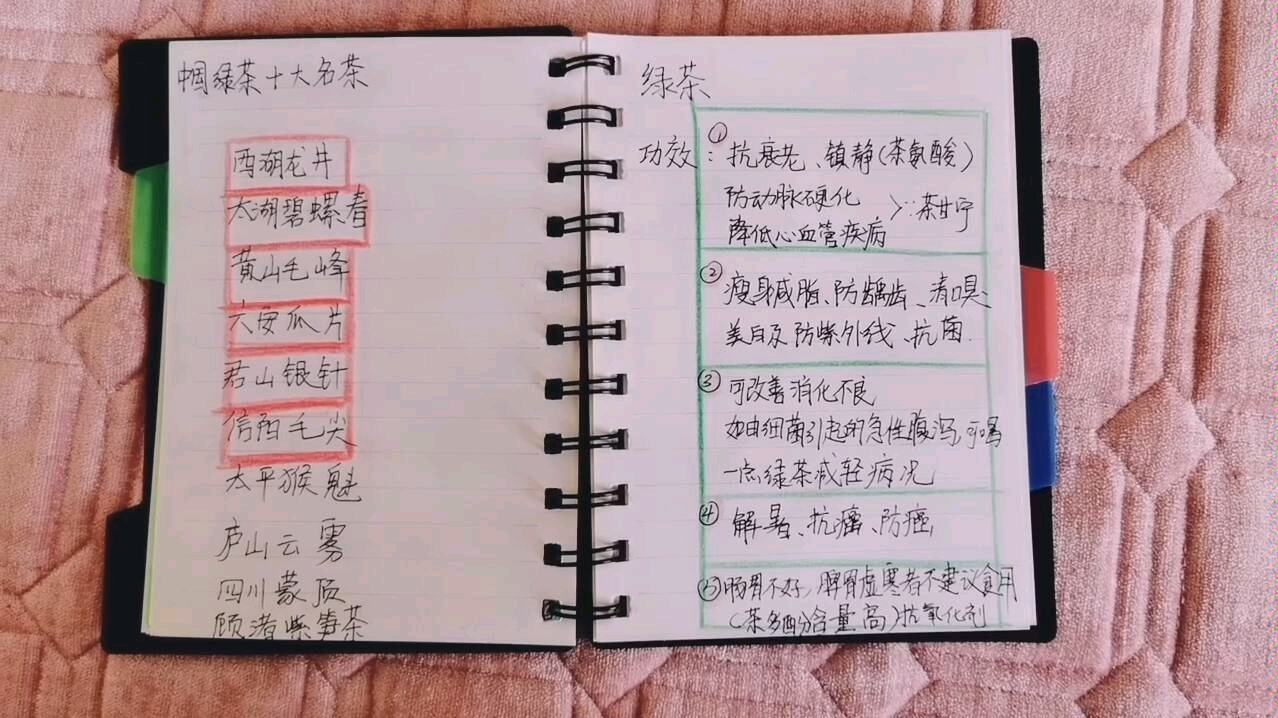 中国绿茶十大名茶
西湖龙井
太湖碧螺春
黄山毛峰
六安瓜片
君山银针
信阳毛尖
太平猴魁
庐山云雾
四川蒙顶
顾渚紫笋茶
绿茶
功效：①抗衰老、镇静(茶氨酸)
防动脉硬化
降低心血管疾病 >∵茶甘宁
②瘦身减脂、防龋齿、清口臭
美白及防紫外线、抗菌.
③可改善消化不良
如由细菌引起的急性腹泻,可喝
一点绿茶减轻病况
④解暑、抗癌、防癌,
⑤肠胃不好,脾胃虚寒者不建议食用
(茶多酚含量高)抗氧化剂